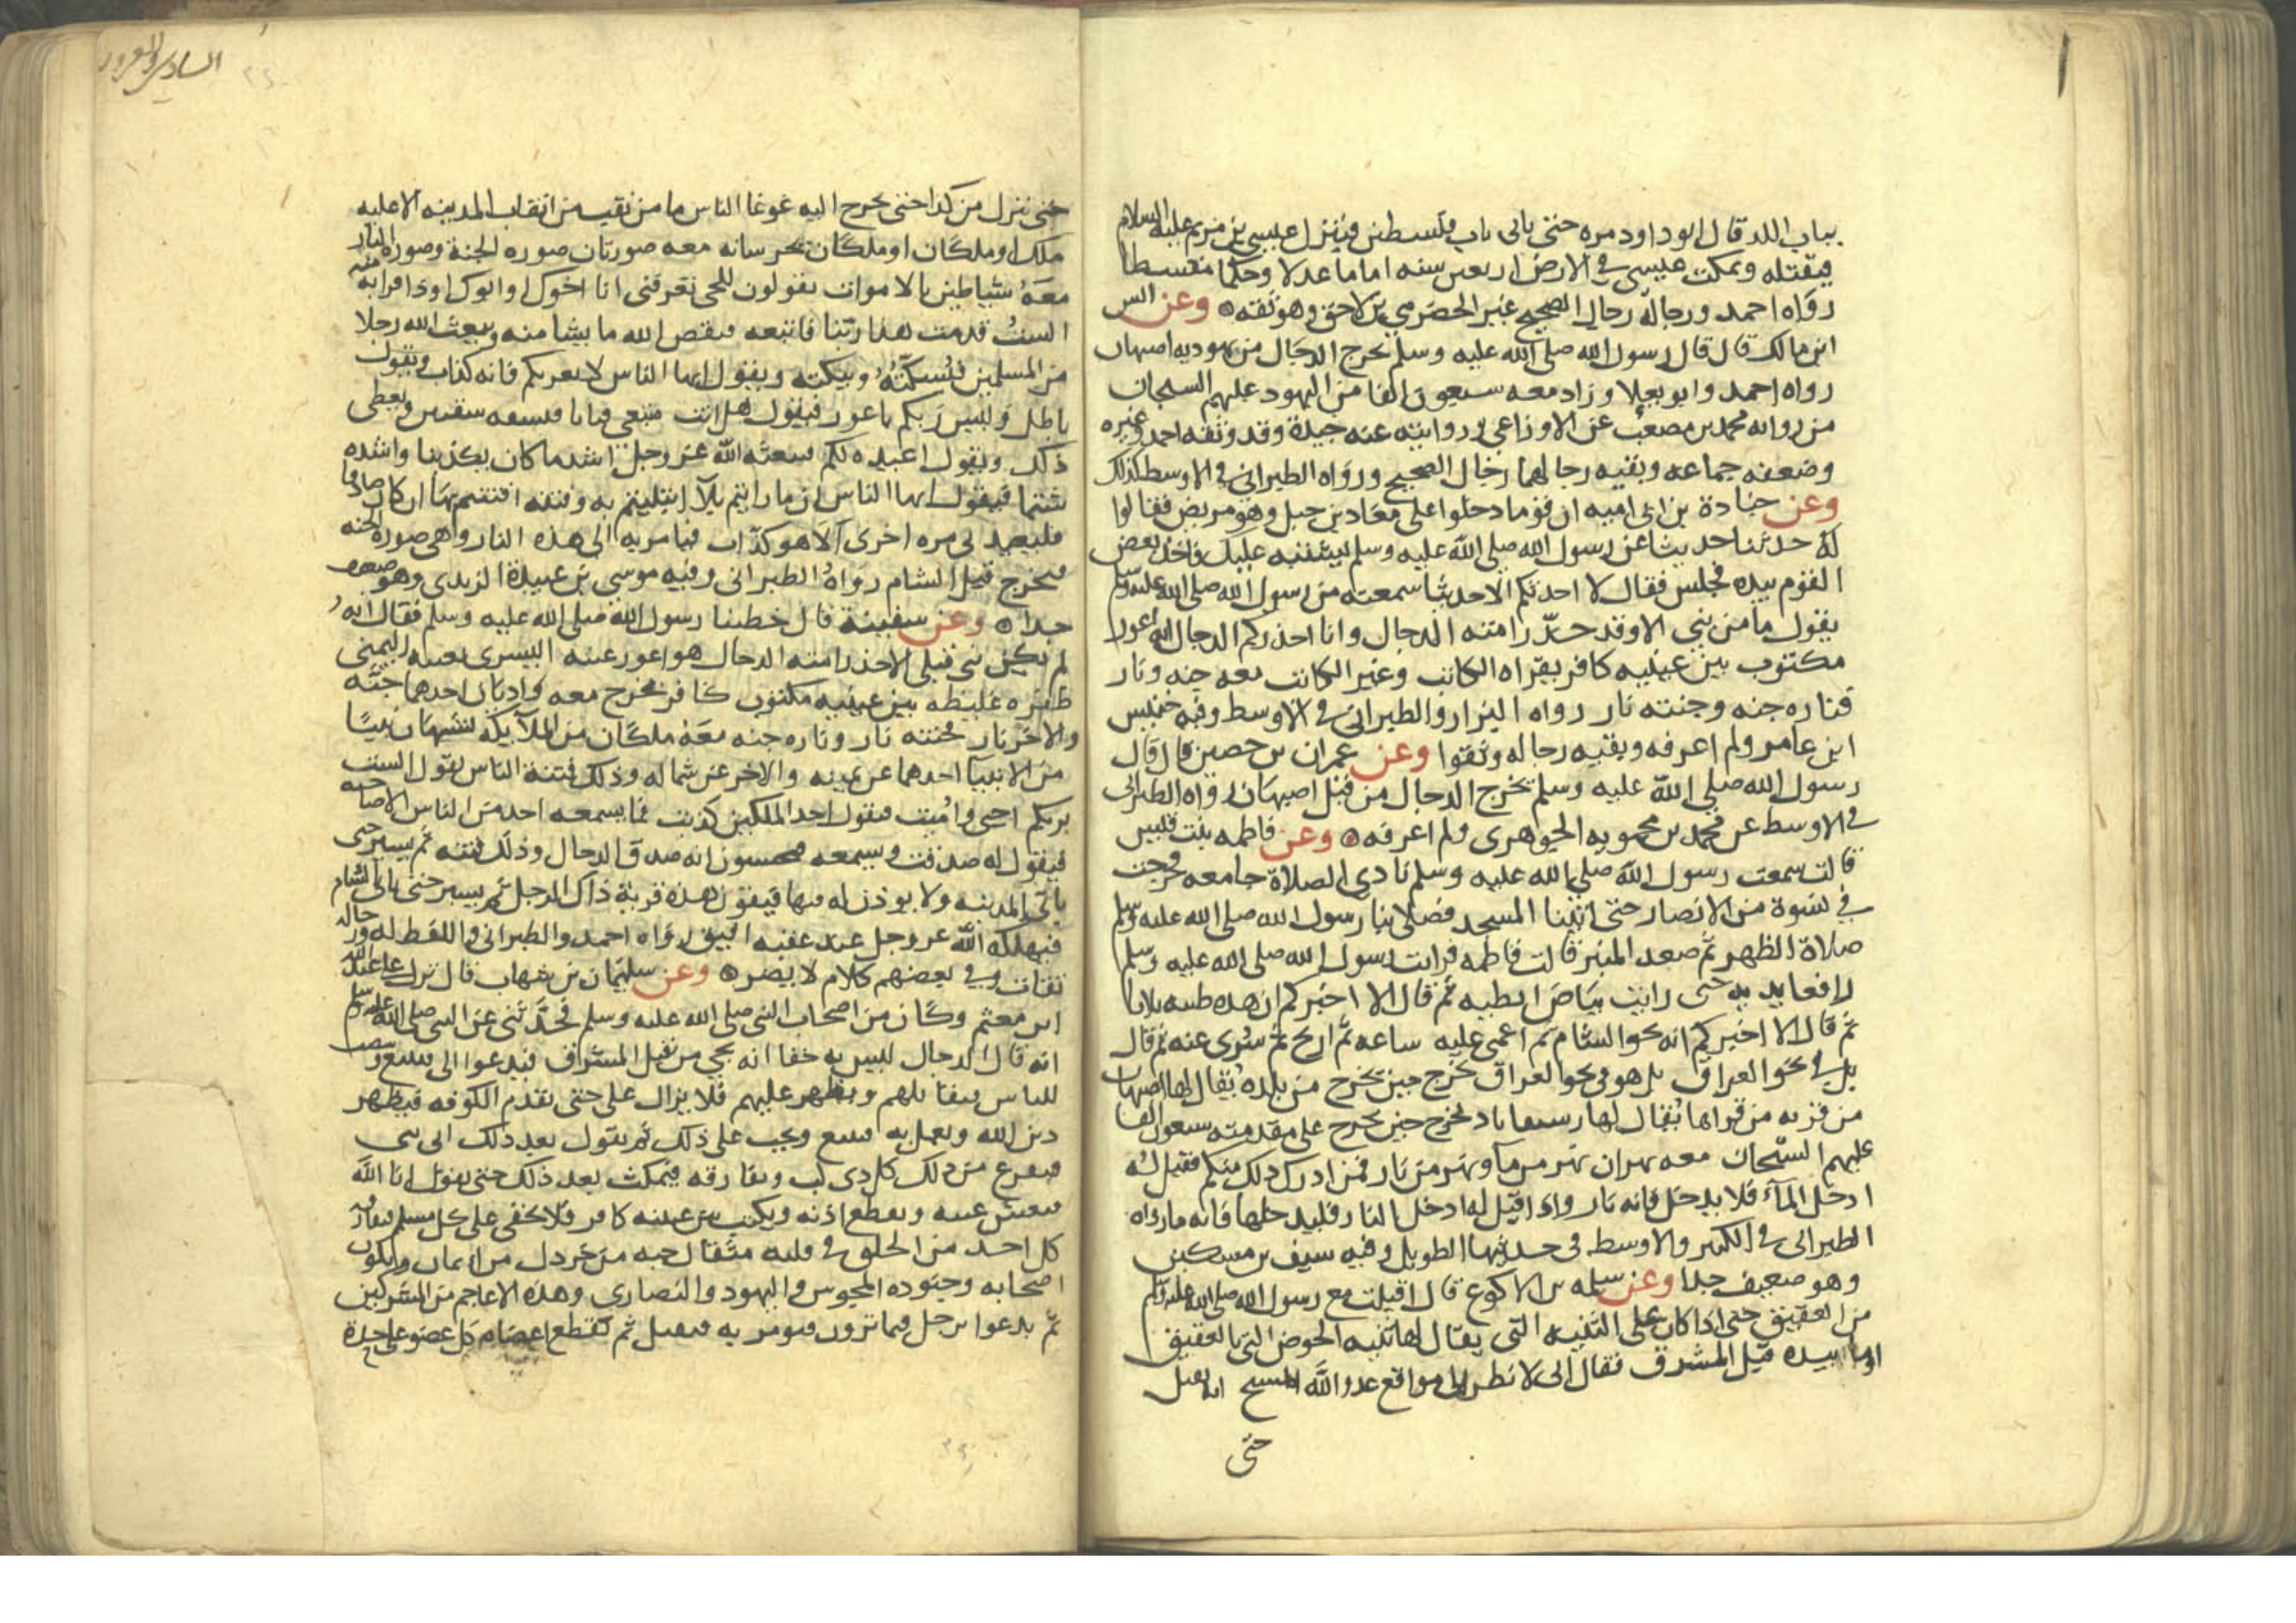 بباب اللد قال ابو داود مره حتى ياتى باب فلسطين فينزل عيسى بن مريم عليه السلام
فيقتله ويمكث عيسى في الارض اربعين سنه اماما عدلا وحكما مقسطا
رواه احمد ورجاله رجال الصحيح غير الحضرمي بن لاحق وهو ثقه وعن انس
ابن مالك قال قال رسول الله صلى الله عليه وسلم يخرج الدجال من يهوديه اصبهان
رواه احمد وابو يعلا وزاد معه سبعون الفا من اليهود عليهم السيجان
من روايه محمد بن مصعب عن الاوزاعي وروايته عنه جيدة وقد وثقه احمد وغيره
وضعفه جماعه وبقيه رجالهما رجال الصحيح ورواه الطبراني في الاوسط كذلك
وعن جنادة بن ابى اميه ان قوما دخلوا على معاذ بن جبل وهو مريض فقالوا
له حدثنا حديثا عن رسول الله صلى الله عليه وسلم لم يشتبه عليك فاخذ بعض
القوم بيده فجلس فقال لا احدثكم الا حديثا سمعته من رسول الله صلى الله عليه وسلم
يقول ما من نبي الا وقد حذّر امته الدجال وانا احذركم الدجال انه اعور
مكتوب بين عينيه كافر يقراه الكاتب وغير الكاتب معه جنه ونار
فناره جنه وجنته نار رواه البزار والطبراني في الاوسط وفيه خنيس
ابن عامر ولم اعرفه وبقيه رجاله وثقوا وعن عمران بن حصين قال قال
رسول الله صلى الله عليه وسلم يخرج الدجال من قبل اصبهان رواه الطبراني
في الاوسط عن محمد بن محمويه الجوهرى ولم اعرفه وعن فاطمه بنت قيس
قالت سمعت رسول الله صلى الله عليه وسلم نادى الصلاة جامعه فخرجت
في نسوة من الانصار حتى اتينا المسجد فصلا بنا رسول الله صلى الله عليه وسلم
صلاة الظهر ثم صعد المنبر قالت فاطمه فرايت رسول الله صلى الله عليه وسلم
رافعا يديه حتى رايت بياض ابطيه ثم قال الا اخبركم ان هذه طيبه ثلاثا
ثم قال الا اخبركم انه نحو الشام ثم اغمى عليه ساعه ثم ثم سُرى عنه ثم قال
بل في نحو العراق بل هو في نحو العراق يخرج حين يخرج من بلدة يُقال لها اصبهان
من قريه من قراها يُقال لها رستقاباد يخرج حين يخرج على مقدمته سبعون الفا
عليهم السيجان معه نهران نهر من مآء ونهر من نار فمن ادرك ذلك منكم فقيل له
ادخل المآء فلا يدخل فانه نار واذا قيل له ادخل النار فليدخلها فانه ما رواه
الطبرانى في الكبير والاوسط فى حديثها الطويل وفيه سيف بن مسكين
وهو ضعيف جدا وعن سلمه بن الاكوع قال اقبلت مع رسول الله صلى الله عليه وسلم
من العقيق حتى اذا كان على الثنيه التى يقال لها ثنيه الحوض التى بالعقيق
اوما بيده قبل المشرق فقال انى لانظر الى مواقع عدو الله المسيح انه يقبل
حتى
السادس والعشرون
حتى ينزل من كدا حتى يخرج اليه غوغا الناس ما من نقب من انقاب المدينه الا عليه
ملك او ملكان او ملكان يحرسانه معه صورتان صوره الجنة وصوره النار
معه شياطين بالاموات يقولون للحى تعرفنى انا اخوك او ابوك او ذا قرابه منه
الستُ قد مت هذا ربّنا فاتبعه فيقص الله ما يشا منه ويبعث الله رجلا
من المسلمين فيُسكته ويبكته ويقول ايها الناس لا يغرنكم فانه كذاب ويقول
باطلا وليس ربكم باعور فيقول هل انت متبعى فيابا فيشقه شقين ويعطى
ذلك ويقول اعيده لكم فيبعثه الله عز وجل اشد ما كان تكذيبا واشده
شتما فيقول ايها الناس ان ما رايتم بلآ ابتليتم به وفتنه افتتنتم بها ان كان صادقا
فليعدنى مره اخرى الا هو كذّاب فيامر به الى هذه النار وهي صورة الجنه
فيخرج قبل الشام رواهُ الطبرانى وفيه موسى بن عبيدة الزبدى وهو ضعيف
جدا وعن سفينة قال خطبنا رسول الله صلى الله عليه وسلم فقال انه
لم يكن نبى قبلى الا حذر امته الدجال هو اعور عينه اليسرى بعينه اليمنى
ظفره غليظه بين عينيه مكتوب كافر يخرج معه واديان احدهما جنّه
والآخر نار فجنته نار وناره جنه معه ملكان من الملآيكه يشبهان نبييّن
من الانبيا احدهما عن يمينه والاخر عن شماله وذلك فتنة الناس يقول الست
بربكم احيى واميت فيقول احد الملكين كذبت فما يسمعه احد من الناس الا صاحبه
فيقول له صدقت ويسمعه فيحسبون انه صدق الدجال وذلك فتنه ثم يسير حتى
ياتى المدينه ولا يوذن له فيها فيقول هذه قرية ذاك الرجل ثم يسير حتى ياتى الشام
فيهلكه الله عز وجل عند عقبه افيق رواه احمد والطبرانى واللفظ له ورجاله
ثقات وفي بعضهم كلام لا يضر وعن سليمان بن شهاب قال نزل على عبد الله
ابن مغنم وكان من اصحاب النبى صلى الله عليه وسلم فحدَّثنى عن النبى صلى الله عليه وسلم
انه قال الدجال ليس به خفا انه يجى من قبل المشرق فيدعوا الى فيتبع وينصب
للناس فيقاتلهم ويظهر عليهم فلا يزال على حتى يقدم الكوفه فيظهر
دين الله ويعمل به فيتبع ويحب على ذلك ثم يقول بعد ذلك انى نبى
فيفزع من ذلك كل ذى لب ويفارقه فيمكث بعد ذلك حتى يقول انا الله
فتغشى عينه وتقطع اذنه ويكتب بين عينيه كافر فلا يخفى على كل مسلم فيفارقه
كل احد من الخلق في قلبه مثقال حبه من خردل من ايمان ويكون
اصحابه وجنوده المجوس واليهود والنصارى وهذه الاعاجم من المشركين
ثم يدعوا برجل فيما ترون فيومر به فيقتل ثم تقطع اعضاه كل عضو على حدة